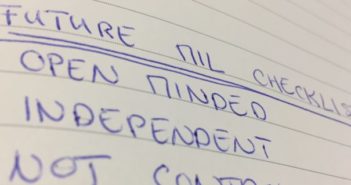 FUTURE MIL CHECKLIS
OPEN MINDED
INDEPENDENT
NOT CONTR